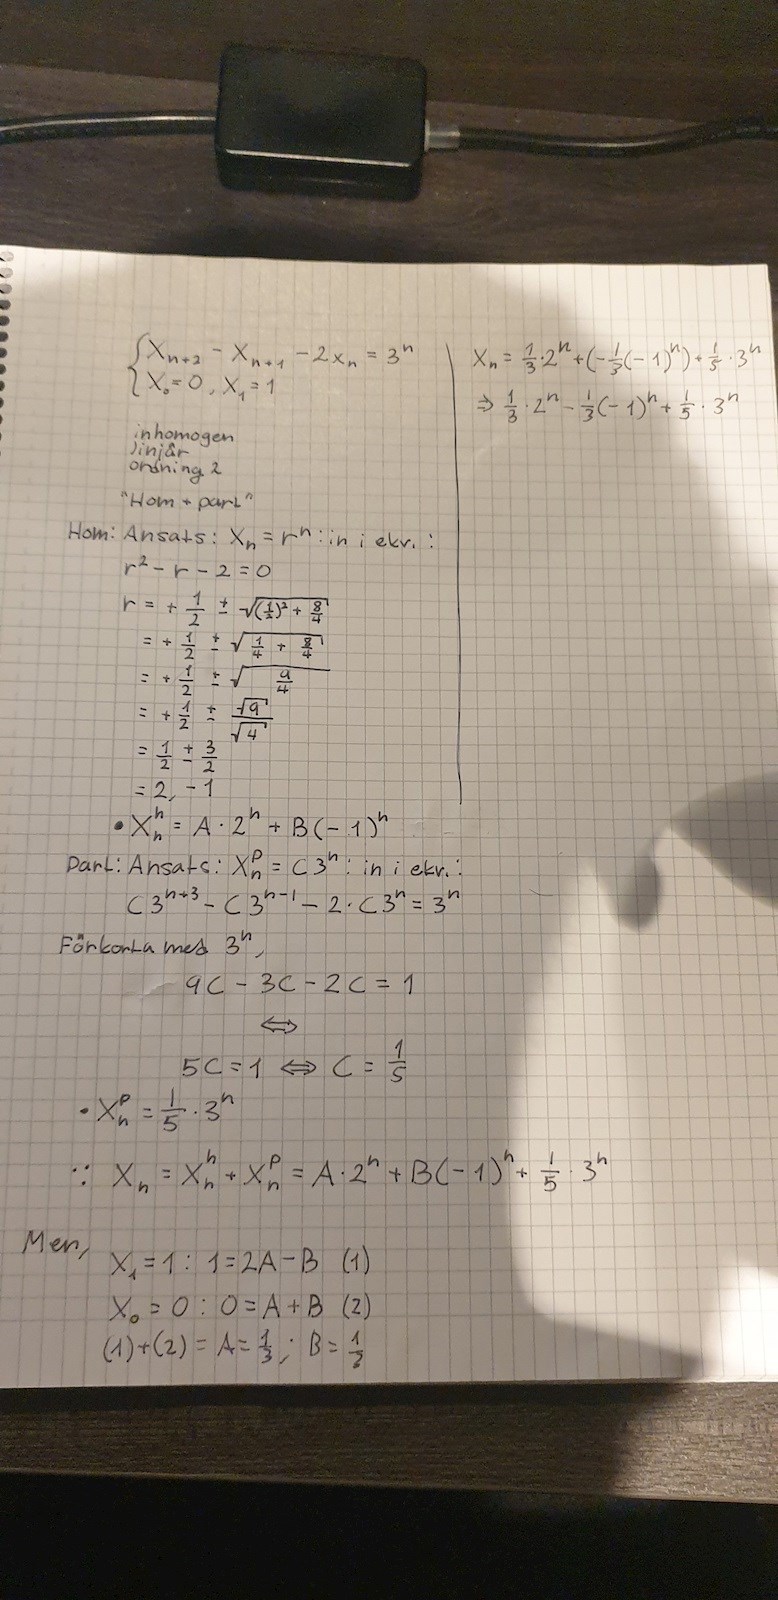 { X_{n+2} - X_{n+1} - 2x_n = 3^n
X_0 = 0, X_1 = 1
inhomogen
linjär
ordning 2
"Hom + part"
Hom: Ansats: X_n = r^n : in i ekv. :
r^2 - r - 2 = 0
r = + 1/2 ± √((1/2)^2 + 8/4)
= + 1/2 ± √(1/4 + 8/4)
= + 1/2 ± √(9/4)
= + 1/2 ± √9/√4
= 1/2 ± 3/2
= 2, -1
• X_n^h = A · 2^n + B(-1)^n
Part: Ansats: X_n^p = C3^n : in i ekv. :
C3^{n+3} - C3^{n-1} - 2 · C3^n = 3^n
Förkorta med 3^n,
9C - 3C - 2C = 1
⇔
5C = 1 ⇔ C = 1/5
• X_n^p = 1/5 · 3^n
∵ X_n = X_n^h + X_n^p = A · 2^n + B(-1)^n + 1/5 · 3^n
Men,
X_1 = 1 : 1 = 2A - B (1)
X_0 = 0 : 0 = A + B (2)
(1)+(2) = A = 1/3 ; B = 1/3
X_n = 1/3 · 2^n + (-1/3(-1)^n) + 1/5 · 3^n
⇒ 1/3 · 2^n - 1/3(-1)^n + 1/5 · 3^n